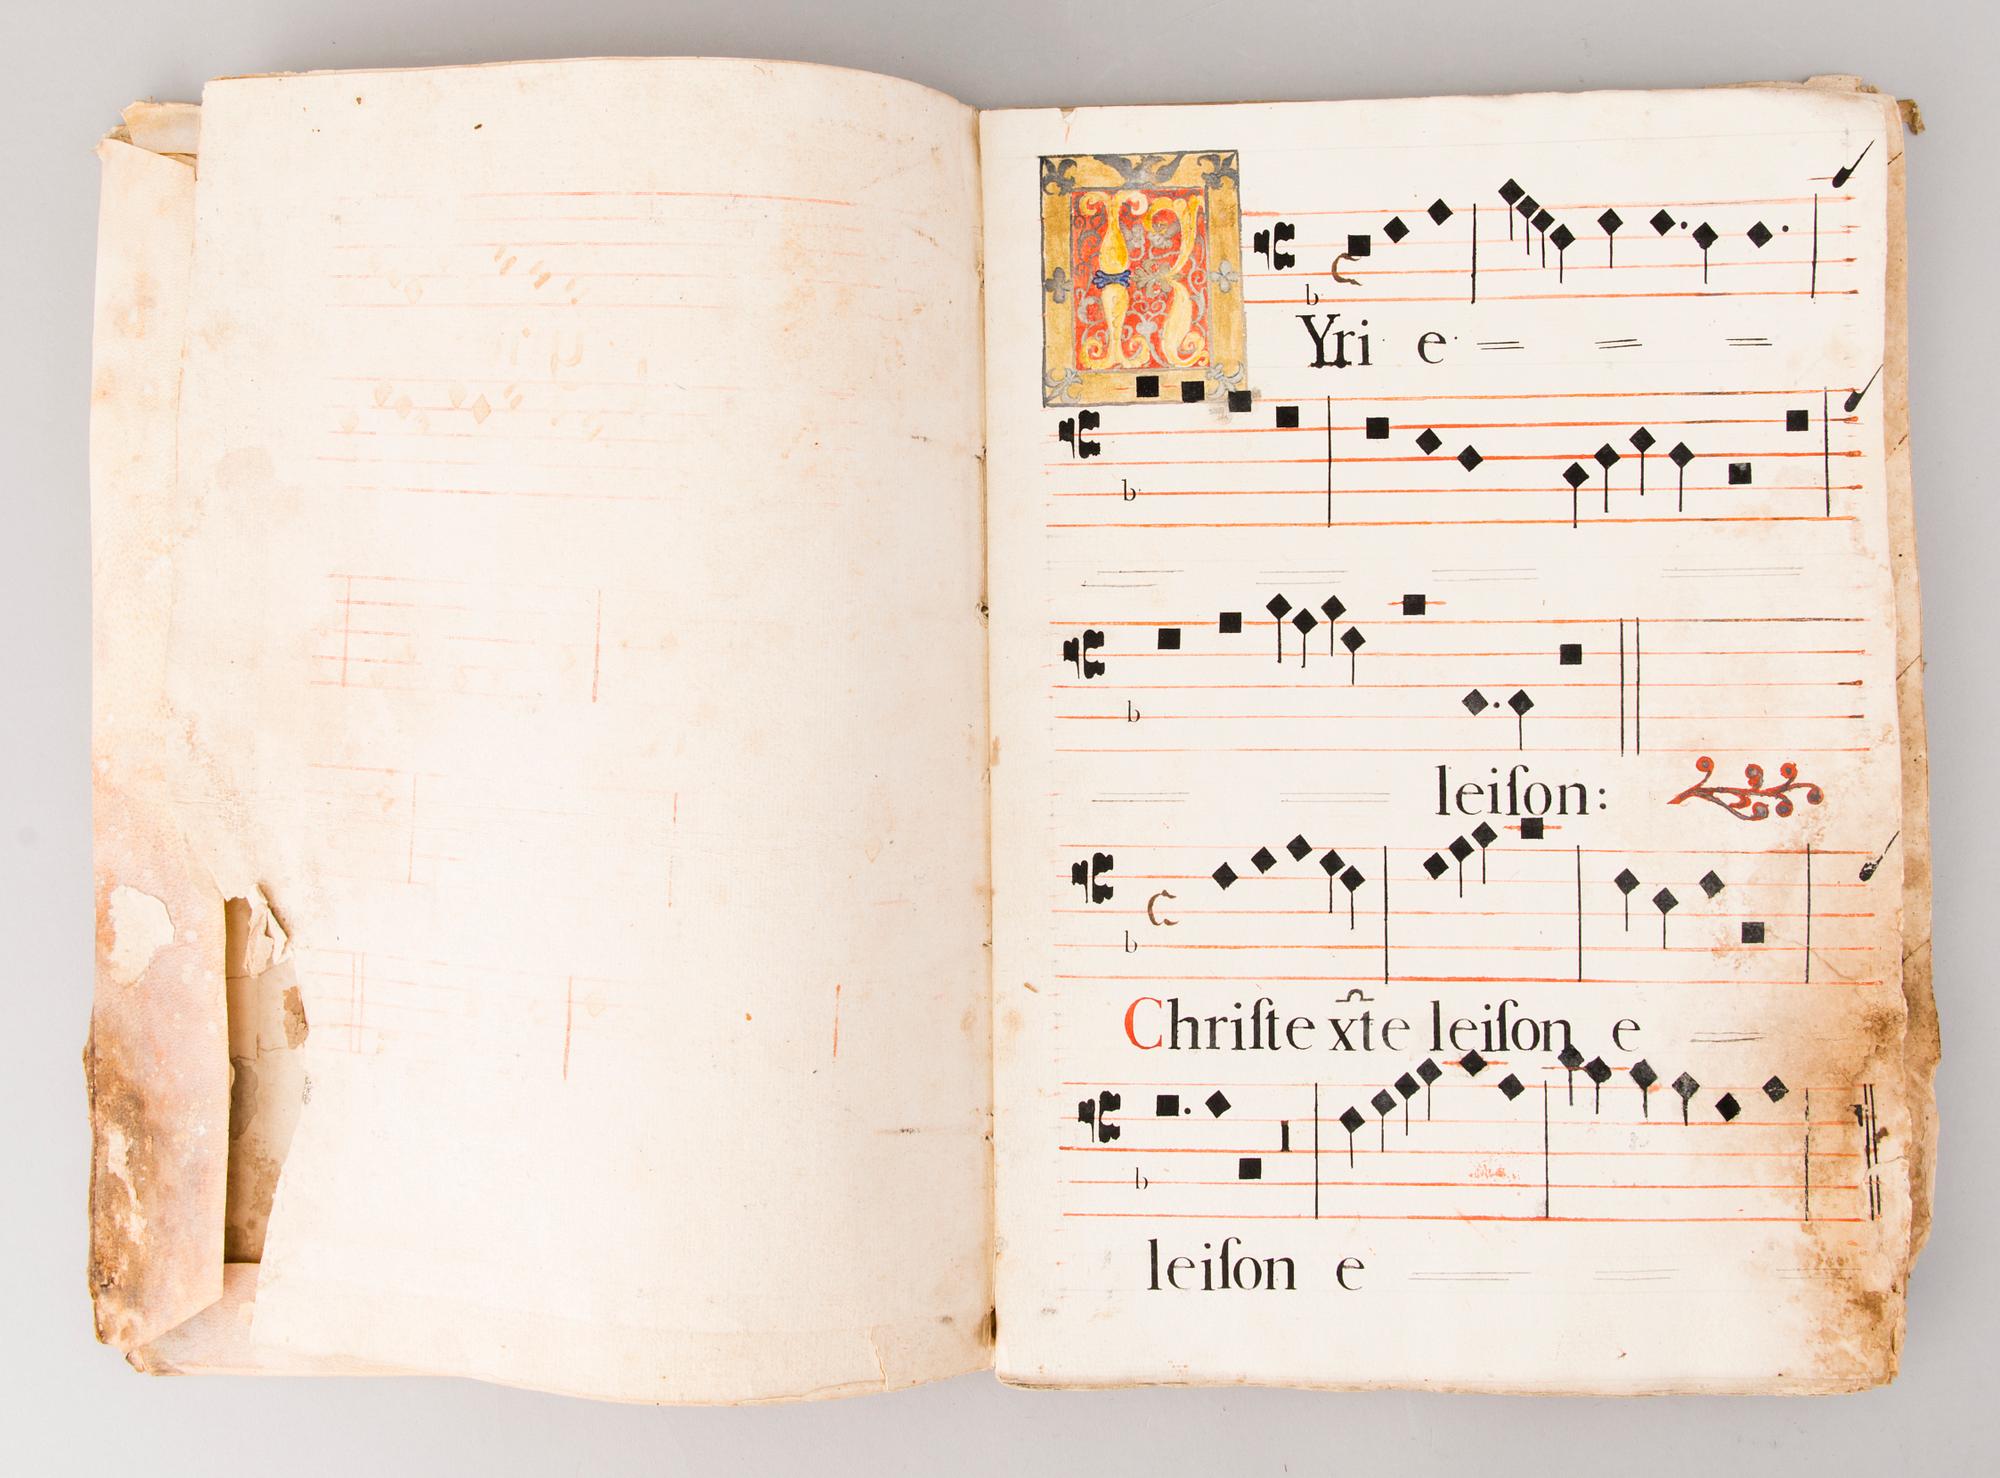 KYri e
leiſon:
Chriſte xt̃e leiſon e
leiſon e